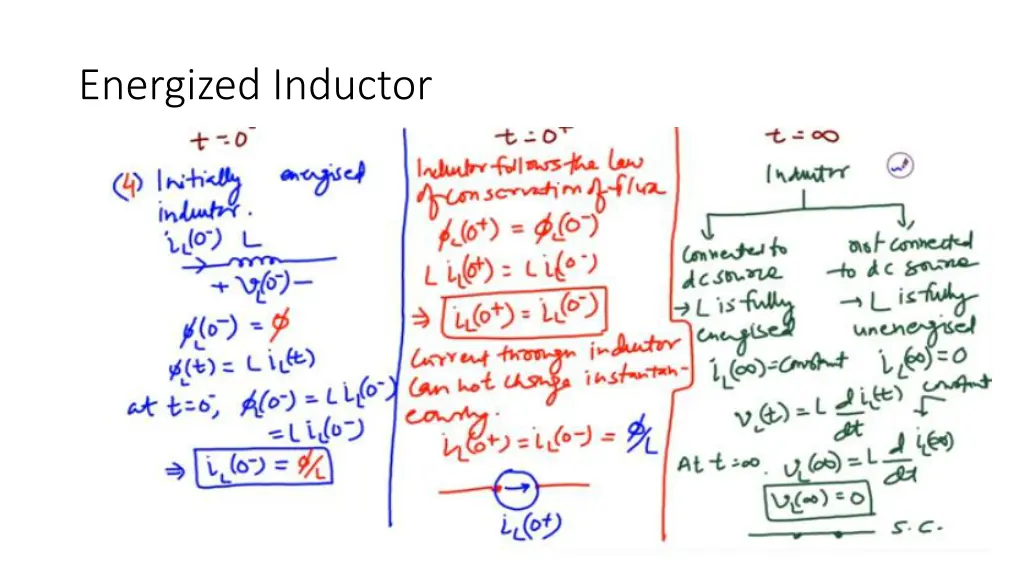 Energized Inductor
t = 0⁻
(4) Initially energised
inductor.
i_L(0⁻) L
+ V_L(0⁻) −
ϕ_L(0⁻) = ϕ
ϕ_L(t) = L i_L(t)
at t=0⁻, ϕ_L(0⁻) = L i_L(0⁻)
= L i_L(0⁻)
⇒ i_L(0⁻) = ϕ/L
t = 0⁺
Inductor follows the Law
of conservation of flux
ϕ_L(0⁺) = ϕ_L(0⁻)
L i_L(0⁺) = L i_L(0⁻)
⇒ i_L(0⁺) = i_L(0⁻)
Current through inductor
can not change instantan-
eously.
i_L(0⁺) = i_L(0⁻) = ϕ/L
i_L(0⁺)
t = ∞
Inductor
Connected to
dc source
→ L is fully
energised
i_L(∞) = constant
not connected
to dc source
→ L is fully
unenergised
i_L(∞) = 0
V_L(t) = L d i_L(t)/dt
constant
At t=∞. V_L(∞) = L d/dt i_L(∞)
V_L(∞) = 0
S.C.